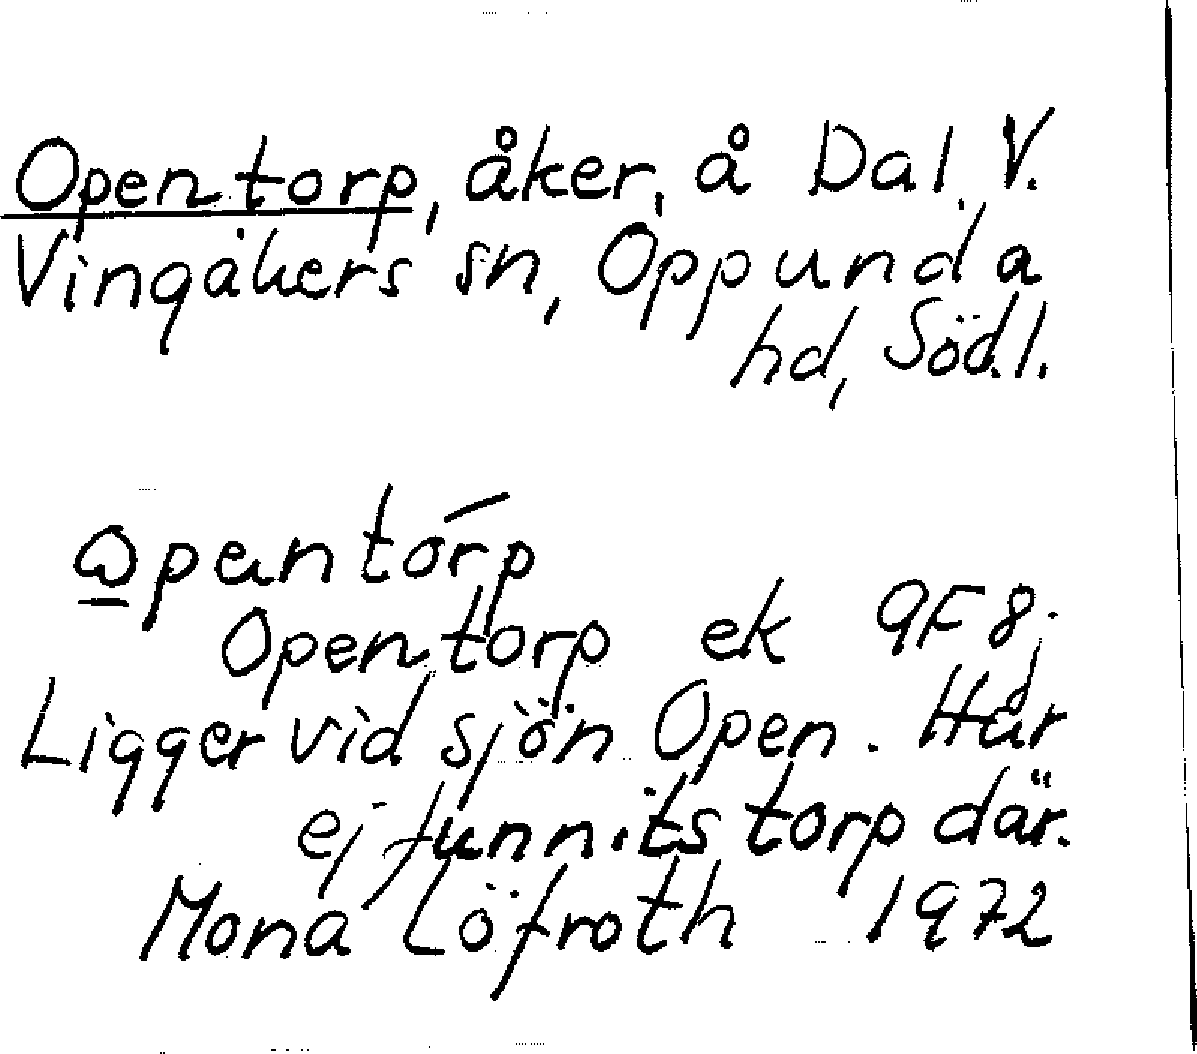 Opentorp, åker, å Dal, V.
Vingåkers sn, Oppunda
hd, Södl.
Opentorp ek 9F8j
Ligger vid sjön Open. Har
ej funnits torp där.
Mona Löfroth 1972